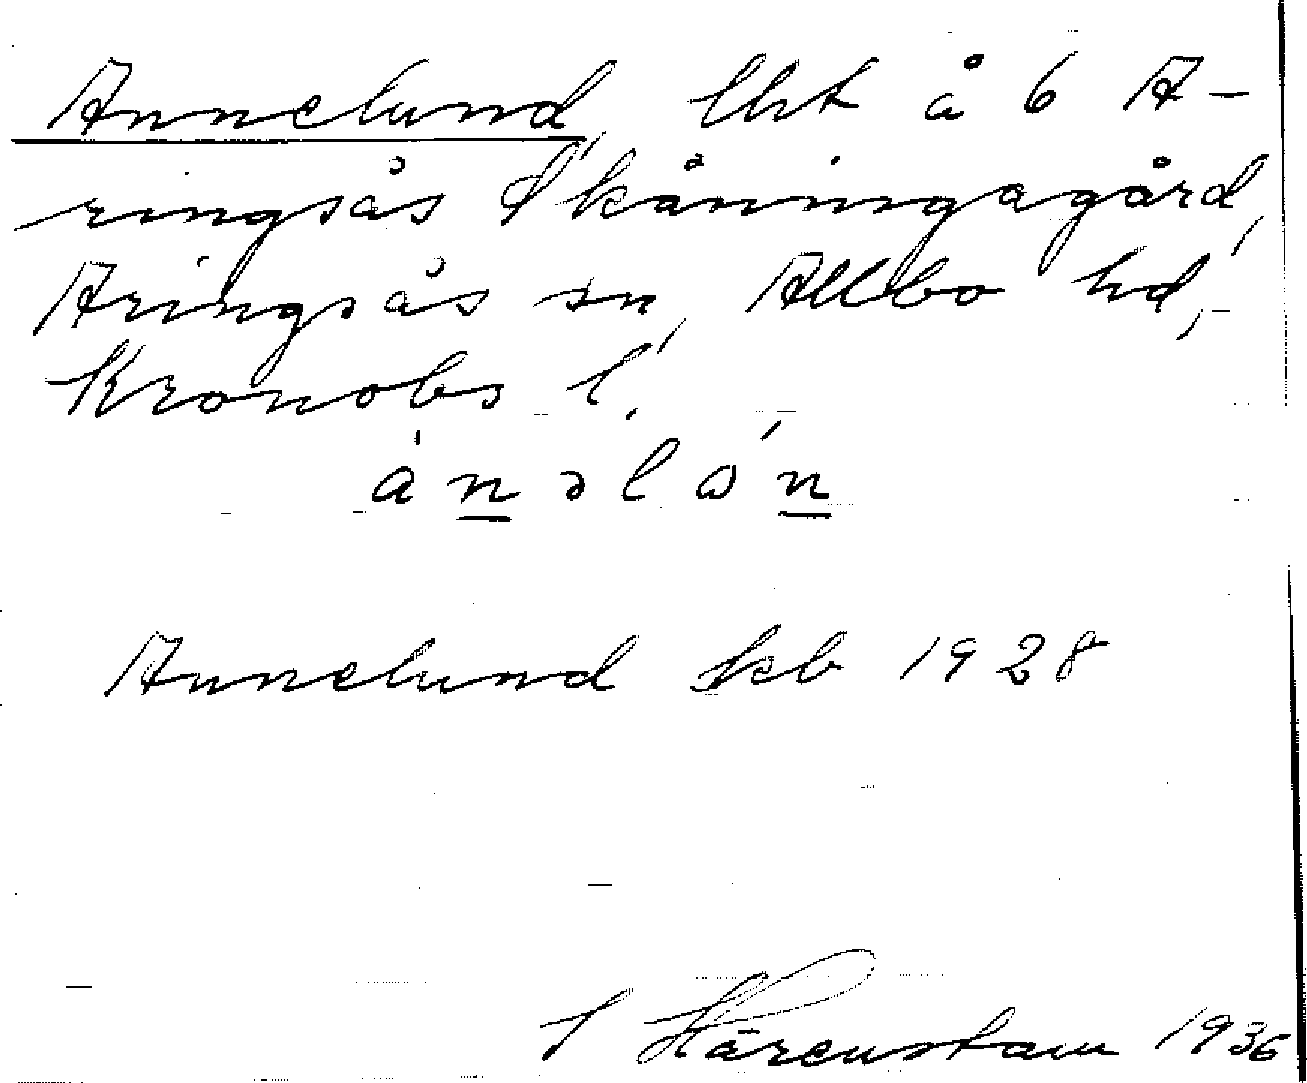 Annelund, lht å 6 A-
ringsås Skåningagård,
Aringsås sn, Allbo hd,
Kronobs l.
Annelund kb 1928
S Härenstam 1936